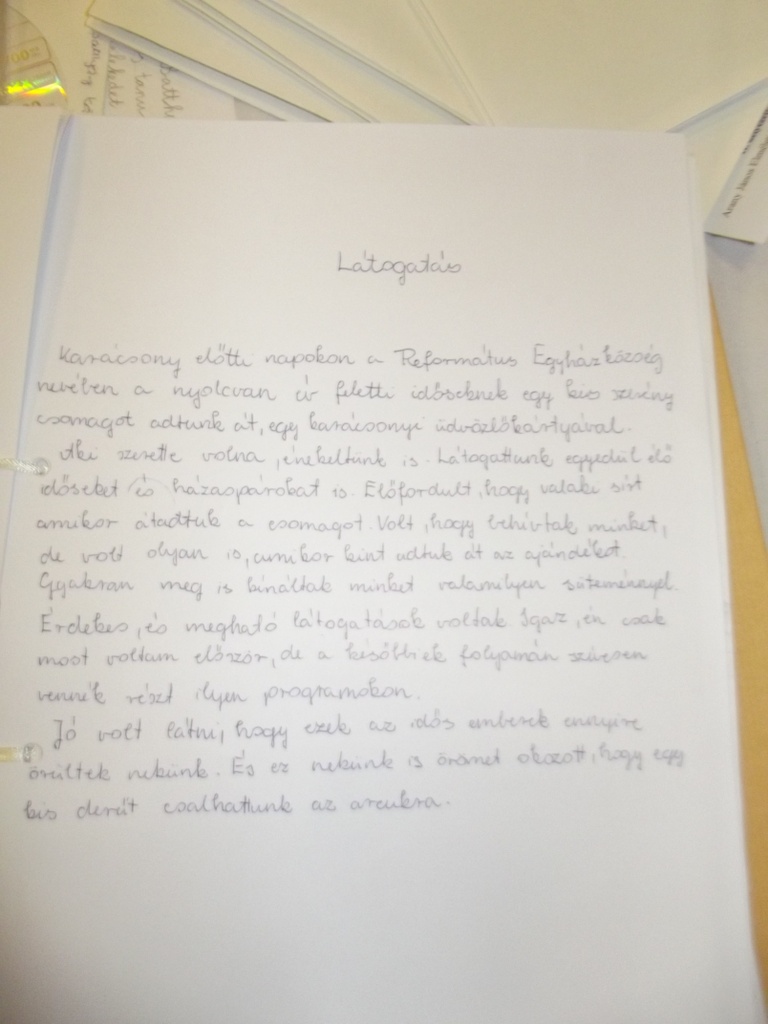 Látogatás
Karácsony előtti napokon a Református Egyházközség
nevében a nyolcvan év feletti időseknek egy kis szerény
csomagot adtunk át, egy karácsonyi üdvözlőkártyával.
Aki szerette volna, énekeltünk is. Látogattunk egyedül élő
időseket és házaspárokat is. Előfordult, hogy valaki sírt
amikor átadtuk a csomagot. Volt, hogy behívtak minket,
de volt olyan is, amikor kint adtuk át az ajándékot.
Gyakran meg is kínáltak minket valamilyen süteménnyel.
Érdekes, és megható látogatások voltak. Igaz, én csak
most voltam először, de a későbbiek folyamán szívesen
vennék részt ilyen programokon.
Jó volt látni, hogy ezek az idős emberek ennyire
örültek nekünk. És ez nekünk is örömet okozott, hogy egy
kis derűt csalhattunk az arcukra.
Arany János